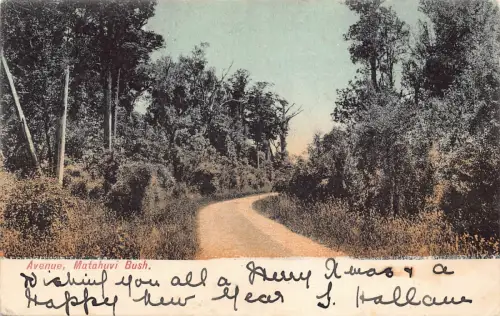 Avenue, Matahuvi Bush.
Wishing you all a Merry Xmas & a
Happy New Year S. Hallam